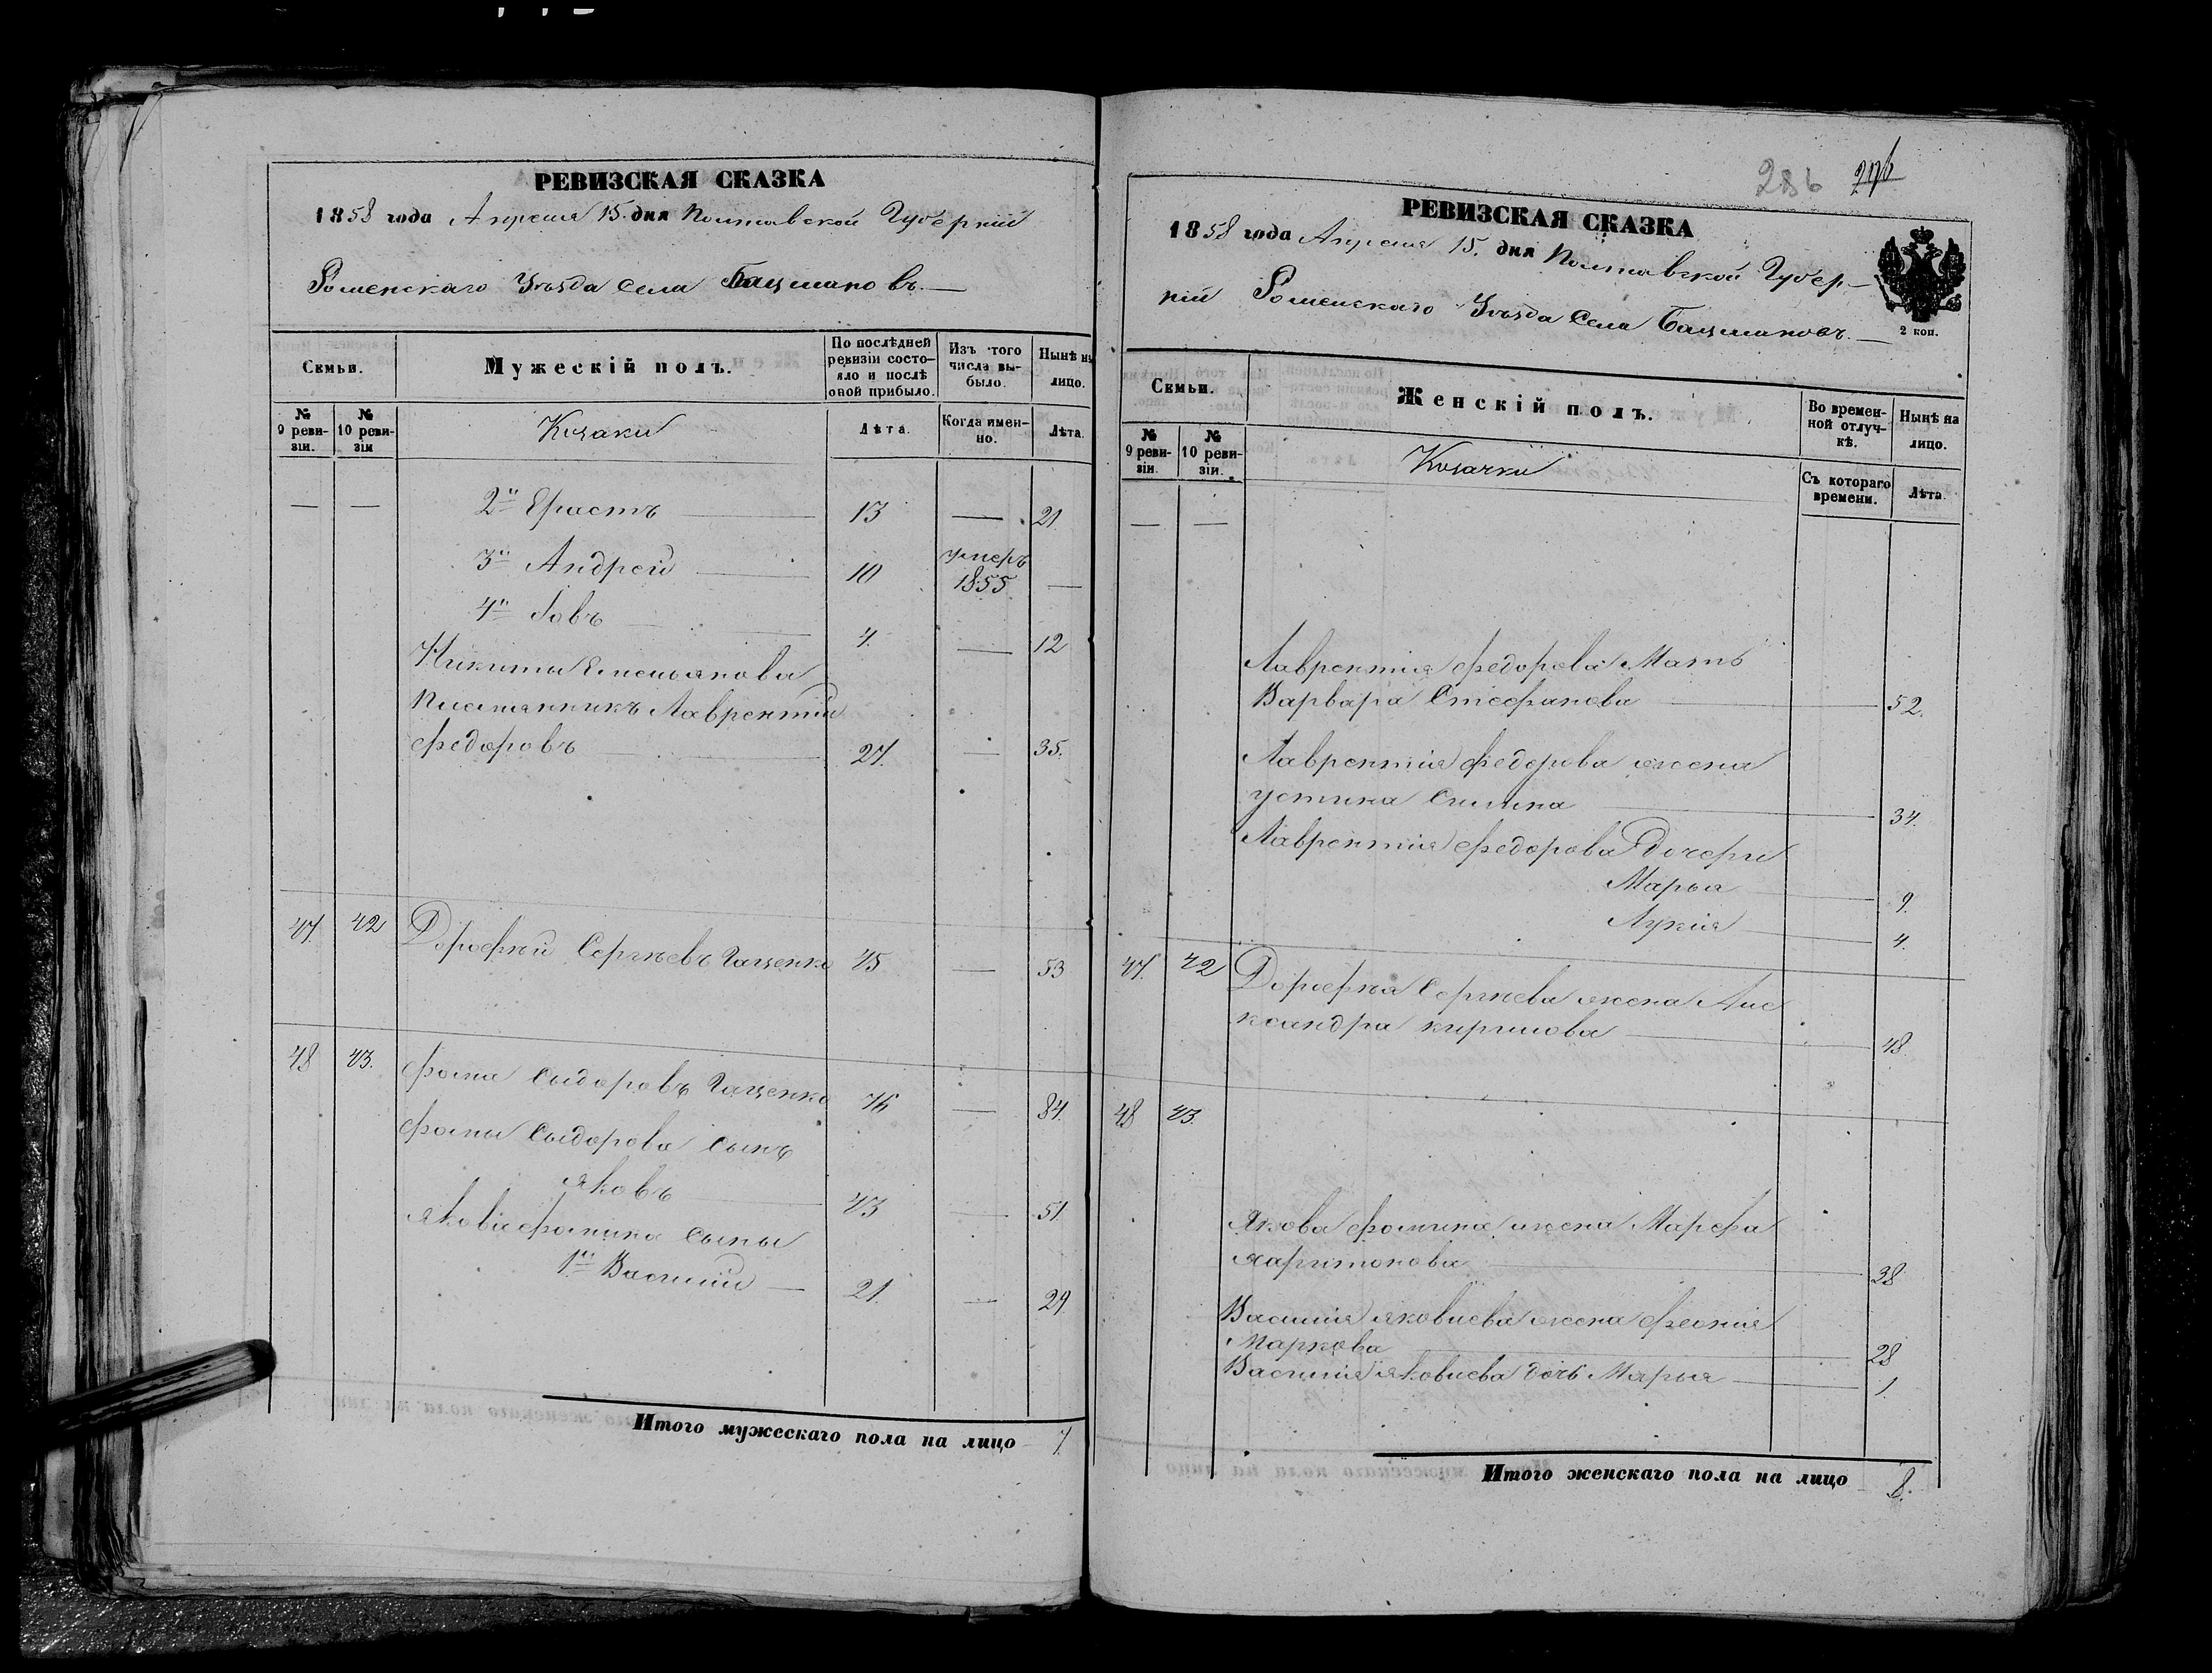 РЕВИЗСКАЯ СКАЗКА
1858 года Апреля 15. дня Полтавской Губерніи
Роменскаго Уѣзда села Бацмановъ.
Семьи.
Мужескій полъ.
По послѣдней ревизіи состояло и послѣ оной прибыло.
Изъ того числа выбыло.
Нынѣ на лицо.
№ 9 ревизіи.
№ 10 ревизіи
Козаки
Лѣта.
Когда именно.
Лѣта.
— — 2й Ерастъ 13 — 21
3й Андрей 10 умеръ 1855 —
4й Іовъ 4. — 12
Никиты Емельянова
Племянникъ Лаврентій
Федоровъ 27. — 35.
47. 42 Дорофѣй Сергѣевъ Гаценко 45 — 53
48 43. Фома Сыдоровъ Гаценко 76 — 84.
Фомы Сыдорова сынъ
Яковъ 43 — 51
Якова Фомина сыны
1й Василий 21. — 29.
Итого мужескаго пола на лицо 7.
286
РЕВИЗСКАЯ СКАЗКА
1858 года Апреля 15. дня Полтавской Губер-
ніи Роменскаго Уѣзда Села Бацмановъ.
2 коп.
Семьи.
Женскій полъ.
Во временной отлучкѣ.
Нынѣ на лицо.
№ 9 ревизіи.
№ 10 ревизіи.
Козачки
Съ котораго времени.
Лѣта.
— —
Лаврентія Федорова Мать
Варвара Стефанова 52.
Лаврентія Федорова жена
Устина Силина 34.
Лаврентія Федорова Дочери
Марья 9.
Лукія 4.
47. 42 Дорофѣя Сергѣева жена Але
ксандра Кирилова 48.
48 43.
Якова Фомина жена Марфа
Харитонова 38
Василія Яковлева жена Феонія
Маркова 28
Василія Яковлева дочь Марья 1.
Итого женскаго пола на лицо 8.